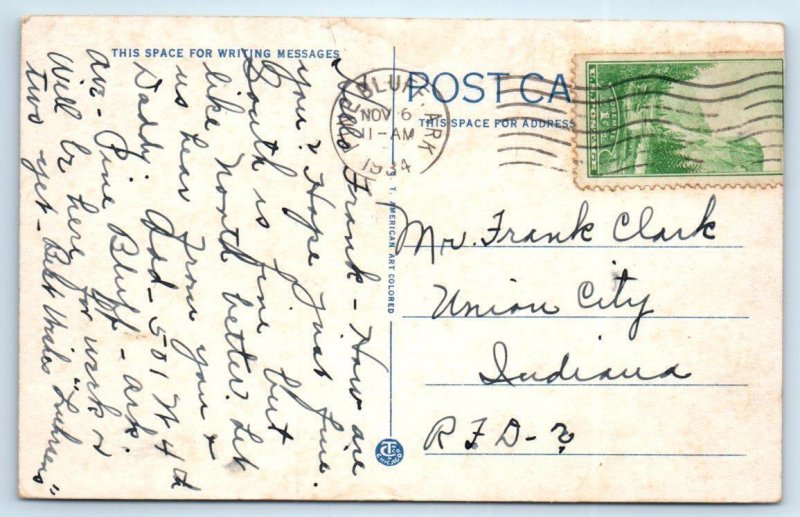 THIS SPACE FOR WRITING MESSAGES
POST CA
THIS SPACE FOR ADDRESS
BLUFF, ARK
NOV 6
11-AM
1934
C. T. AMERICAN ART COLORED
Hello Frank - How are
you? Hope just fine.
South is fine but
like North better. Let
us hear from you &
Daddy. Add - 501 W 4th
Ave - Pine Bluff - Ark.
Will be here for work &
two yet - Best Wishes "Luhrens"
Mr. Frank Clark
Union City
Indiana
RFD-?
CHICAGO